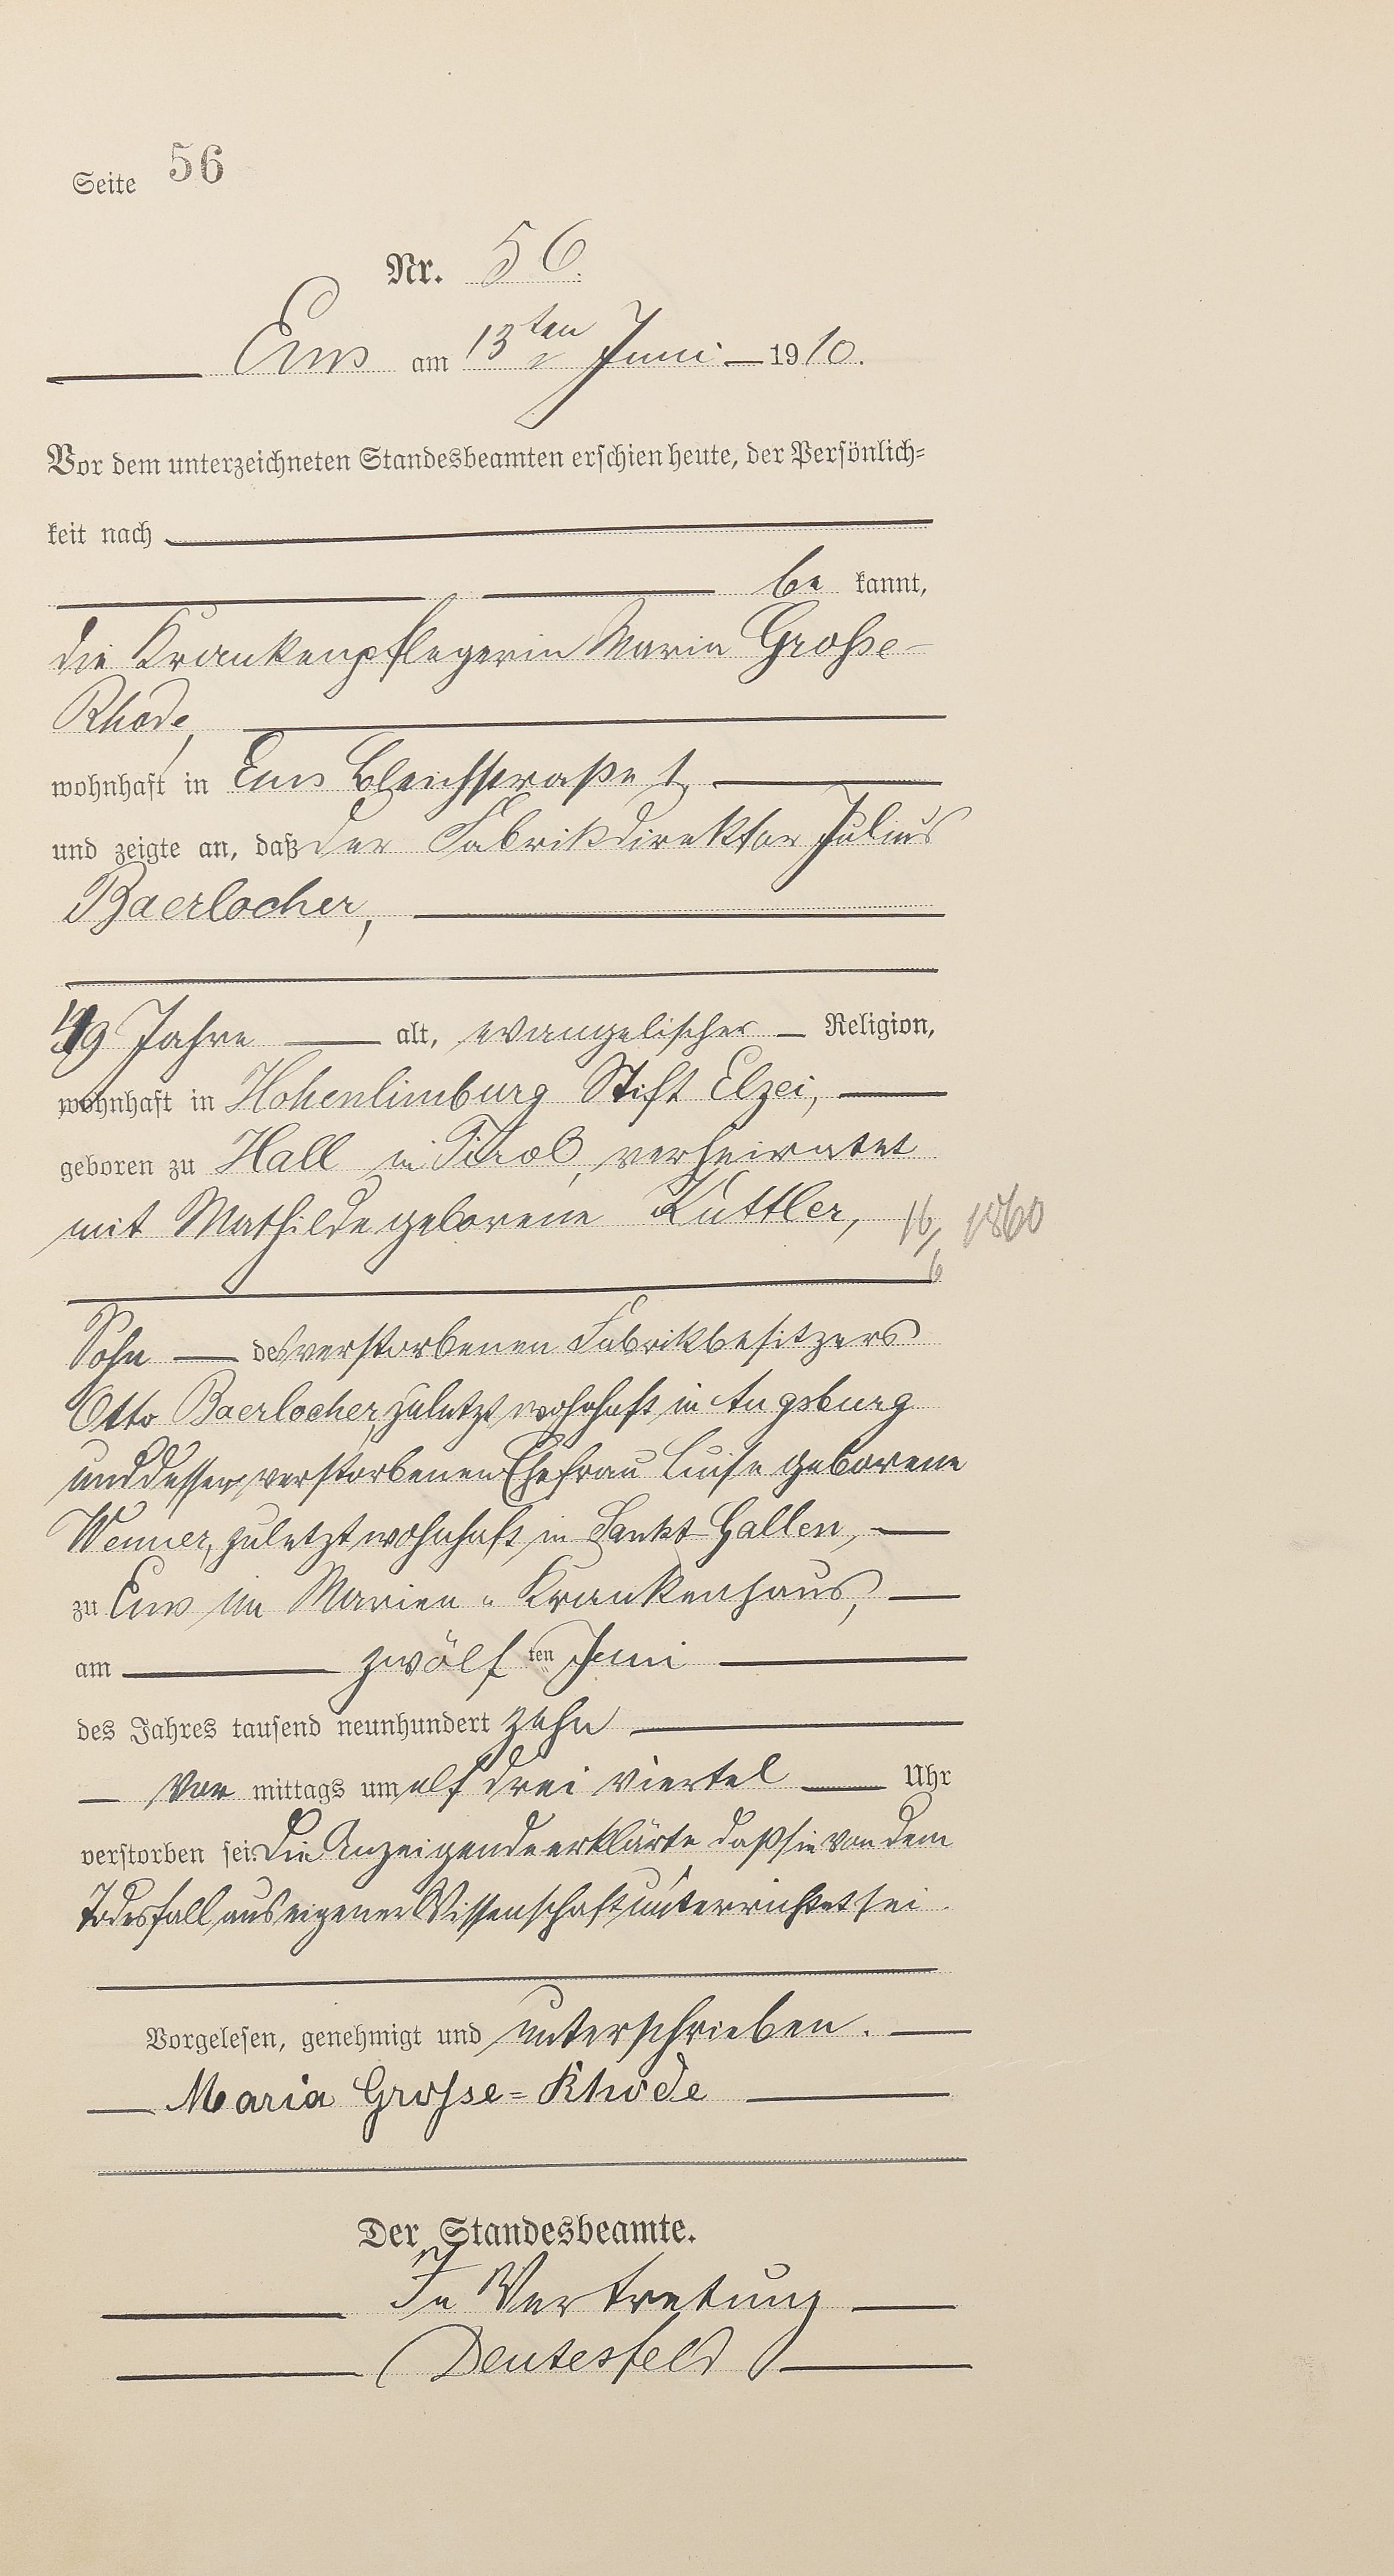 Seite 56
Nr. 56.
Ems am 13ten Juni 1910.
Vor dem unterzeichneten Standesbeamten erschien heute, der Persönlich=
keit nach
be kannt,
die Krankenpflegerin Maria Große-
Rhode,
wohnhaft in Ems Bleichstraße 1,
und zeigte an, daß der Fabrikdirektor Julius
Baerlocher,
49 Jahre alt, evangelischer Religion,
wohnhaft in Hohenlimburg Stift Elzei,
geboren zu Hall in Tirol, verheiratet
mit Mathilde geborene Kuttler, 16/6 1860
Sohn des verstorbenen Fabrikbesitzers
Otto Baerlocher, zuletzt wohnhaft in Augsburg
und dessen verstorbenen Ehefrau Luise geborene
zuletzt wohnhaft in Sankt Gallen,
zu Ems im Marien-Krankenhaus,
am zwölf ten Juni
des Jahres tausend neunhundert zehn
Vor mittags um elf drei viertel Uhr
verstorben sei. Die Anzeigende erklärte daß sie von dem
Todesfall aus eigener Wissenschaft unterrichtet sei.
Vorgelesen, genehmigt und unterschrieben.
Maria Grosse=Rhode
Der Standesbeamte.
In Vertretung
Deutesfeld